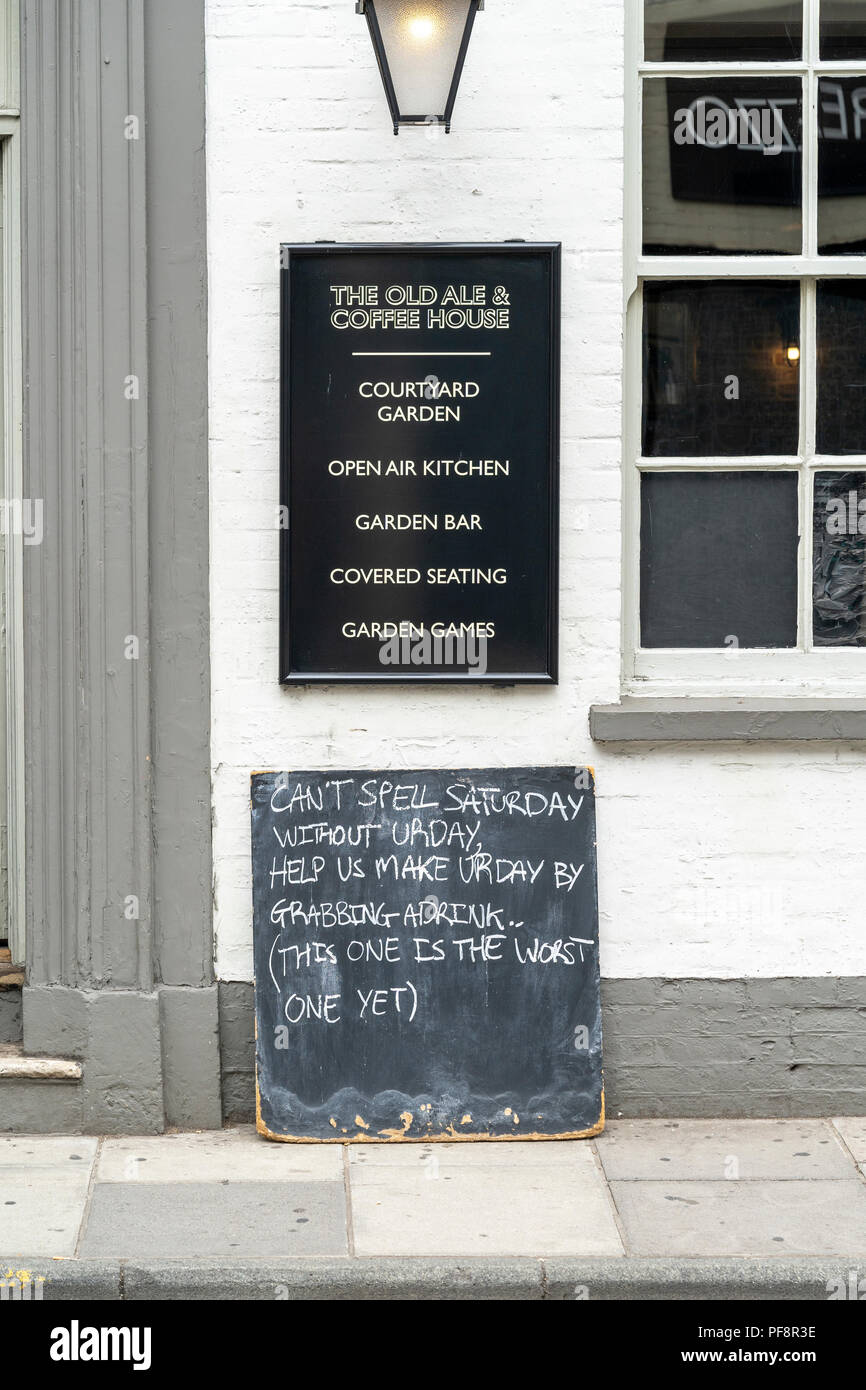 REZZO
THE OLD ALE &
COFFEE HOUSE
COURTYARD
GARDEN
OPEN AIR KITCHEN
GARDEN BAR
COVERED SEATING
GARDEN GAMES
CAN'T SPELL SATURDAY
WITHOUT URDAY,
HELP US MAKE URDAY BY
GRABBING A DRINK..
(THIS ONE IS THE WORST
ONE YET)
alamy
Image ID: PF8R3E
www.alamy.com